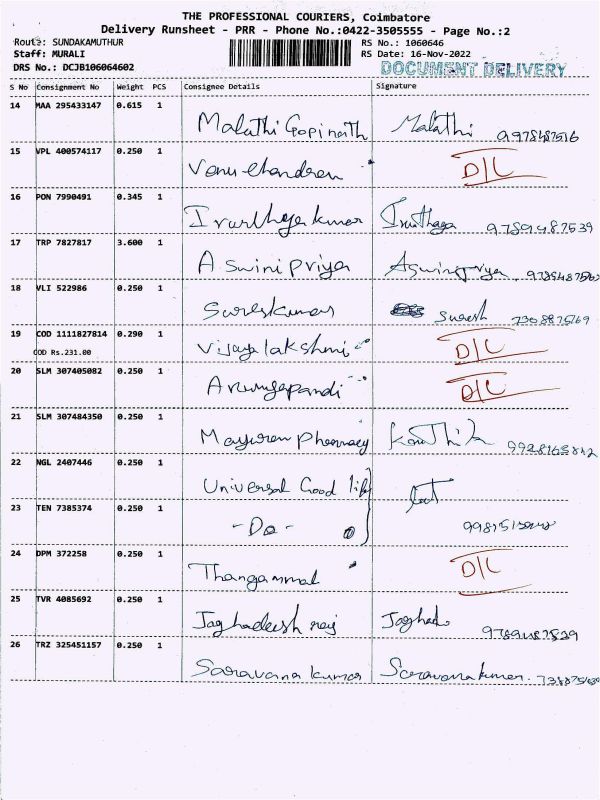 THE PROFESSIONAL COURIERS, Coimbatore
Delivery Runsheet - PRR - Phone No.:0422-3505555 - Page No.:2
Route: SUNDAKAMUTHUR
Staff: MURALI
DRS No.: DCJB106064602
RS No.: 1060646
RS Date: 16-Nov-2022
DOCUMENT DELIVERY
S No Consignment No Weight PCS Consignee Details Signature
14 MAA 295433147 0.615 1
Malathi Gopinath Malathi
15 VPL 400574117 0.250 1
Venu Chandran D/L
16 PON 7990491 0.345 1
9789487539
17 TRP 7827817 3.600 1
Aswini Priya Aswinpriya
18 VLI 522986 0.250 1
Sureskumar Suresh
19 COD 1111827814 0.290 1
COD Rs.231.00
Vijaya lakshmi D/L
20 SLM 307405082 0.250 1
D/L
21 SLM 307484350 0.250 1
Mayuran Pharmacy
22 NGL 2407446 0.250 1
Universal Good life
23 TEN 7385374 0.250 1
- Do -
24 DPM 372258 0.250 1
Thangammal D/L
25 TVR 4085692 0.250 1
Jaghadeesh raj
26 TRZ 325451157 0.250 1
Saravana kumar Saravana kumar